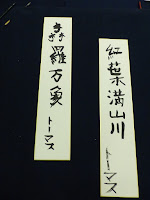 紅葉満山川
トーマス
森羅万象
トーマス